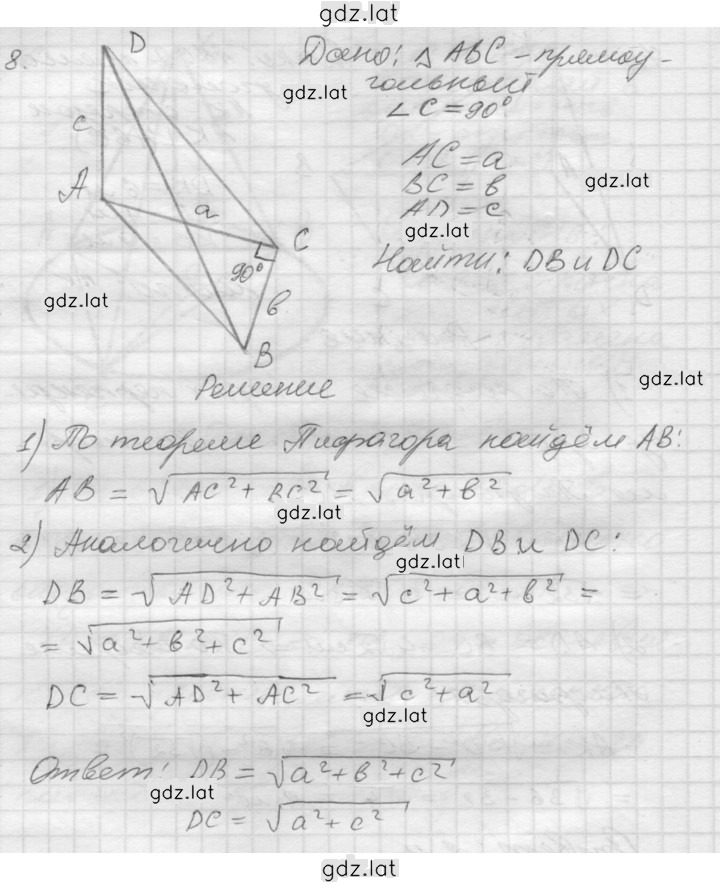 gdz.lat
8.
D
c
A
a
C
90°
в
B
Дано: △ ABC - прямоу-
гольный
gdz.lat
∠ C = 90°
AC = a
BC = в
gdz.lat
AD = c
gdz.lat
Найти: DB и DC
gdz.lat
Решение
gdz.lat
1) По теореме Пифагора найдём AB:
AB = √AC² + BC² = √a² + в²
gdz.lat
2) Аналогично найдём DB и DC:
gdz.lat
DB = √AD² + AB² = √c² + a² + в² =
= √a² + в² + c²
DC = √AD² + AC² = √c² + a²
gdz.lat
Ответ: DB = √a² + в² + c²
gdz.lat
DC = √a² + c²
gdz.lat